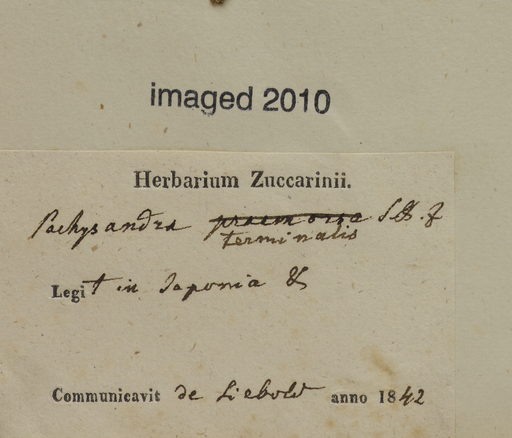 imaged 2010
Herbarium Zuccarinii.
Pachysandra praemorsa S & Z
terminalis
Legit in Japonia
Communicavit de Siebold anno 1842